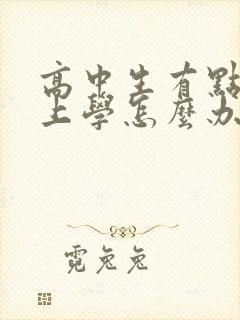 高中生有點
上學怎麼办
霓兔兔